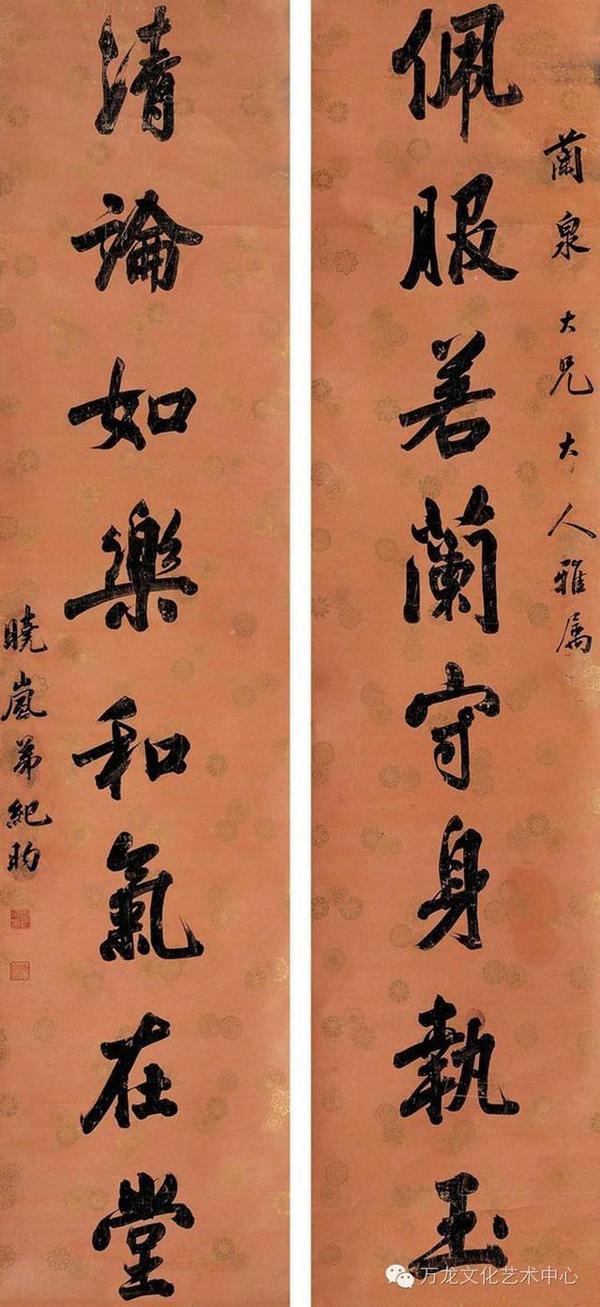 蘭泉大兄大人雅属
佩服若蘭守身執玉
清論如樂和氣在堂
曉嵐弟紀昀
万龙文化艺术中心